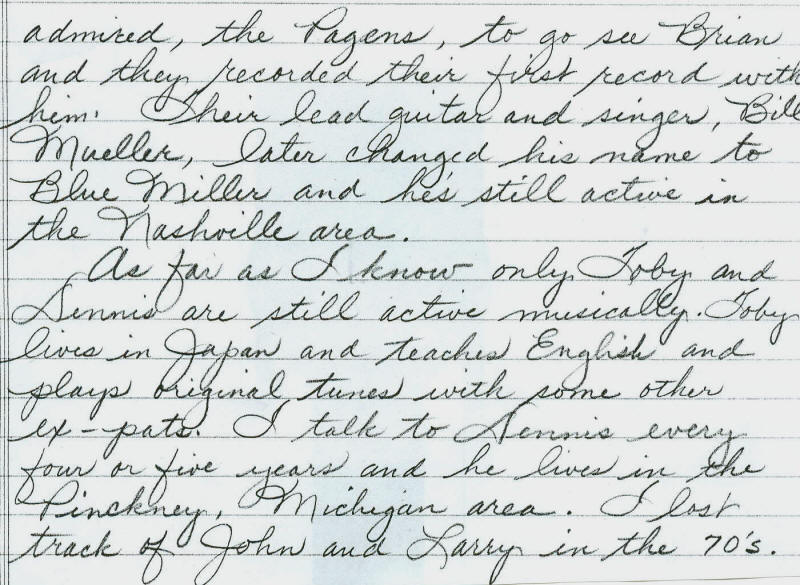 admired, the Pagens, to go see Brian
and they recorded their first record with
him. Their lead guitar and singer, Bill
Mueller, later changed his name to
Blue Miller and he's still active in
the Nashville area.
As far as I know only Toby and
Dennis are still active musically. Toby
lives in Japan and teaches English and
plays original tunes with some other
ex-pats. I talk to Dennis every
four or five years and he lives in the
Pinckney, Michigan area. I lost
track of John and Larry in the 70's.